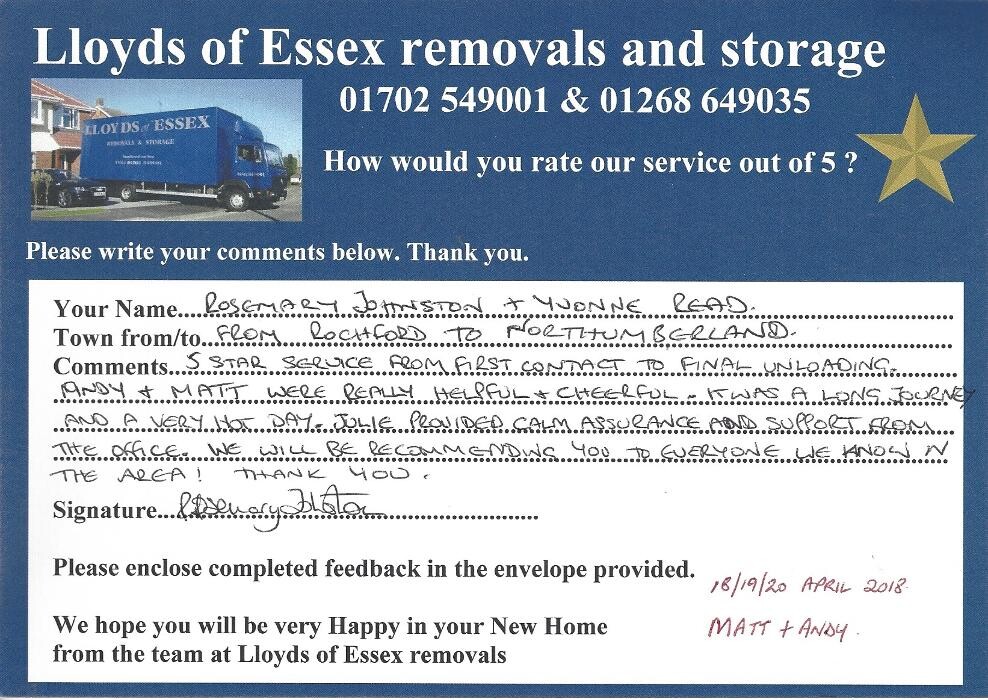 Lloyds of Essex removals and storage
01702 549001 & 01268 649035
LLOYDS of ESSEX
REMOVALS & STORAGE
How would you rate our service out of 5 ?
Please write your comments below. Thank you.
Your Name... ROSEMARY JOHNSTON + YVONNE READ.
Town from/to... FROM ROCHFORD TO NORTHUMBERLAND.
Comments... 5 STAR SERVICE FROM FIRST CONTACT TO FINAL UNLOADING.
ANDY + MATT WERE REALLY HELPFUL + CHEERFUL. IT WAS A LONG JOURNEY
AND A VERY HOT DAY. JULIE PROVIDED CALM ASSURANCE AND SUPPORT FROM
THE OFFICE. WE WILL BE RECOMMENDING YOU TO EVERYONE WE KNOW IN
THE AREA! THANK YOU.
Signature... Rosemary Johnston
Please enclose completed feedback in the envelope provided.
18/19/20 APRIL 2018.
We hope you will be very Happy in your New Home
MATT + ANDY.
from the team at Lloyds of Essex removals